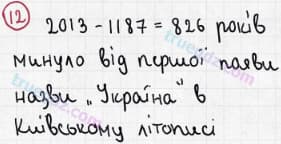 12 2013 - 1187 = 826 років
минуло від першої появи
назви „Україна" в
Київському літописі